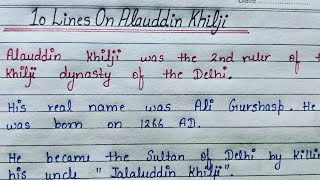 Date
10 Lines On Alauddin Khilji
Alauddin Khilji was the 2nd ruler of t
Khilji dynasty of the Delhi.
His real name was Ali Gurshasp. He
was born on 1266 AD.
He became the Sultan of Delhi by Killin
his uncle "Jalaluddin Khilji".